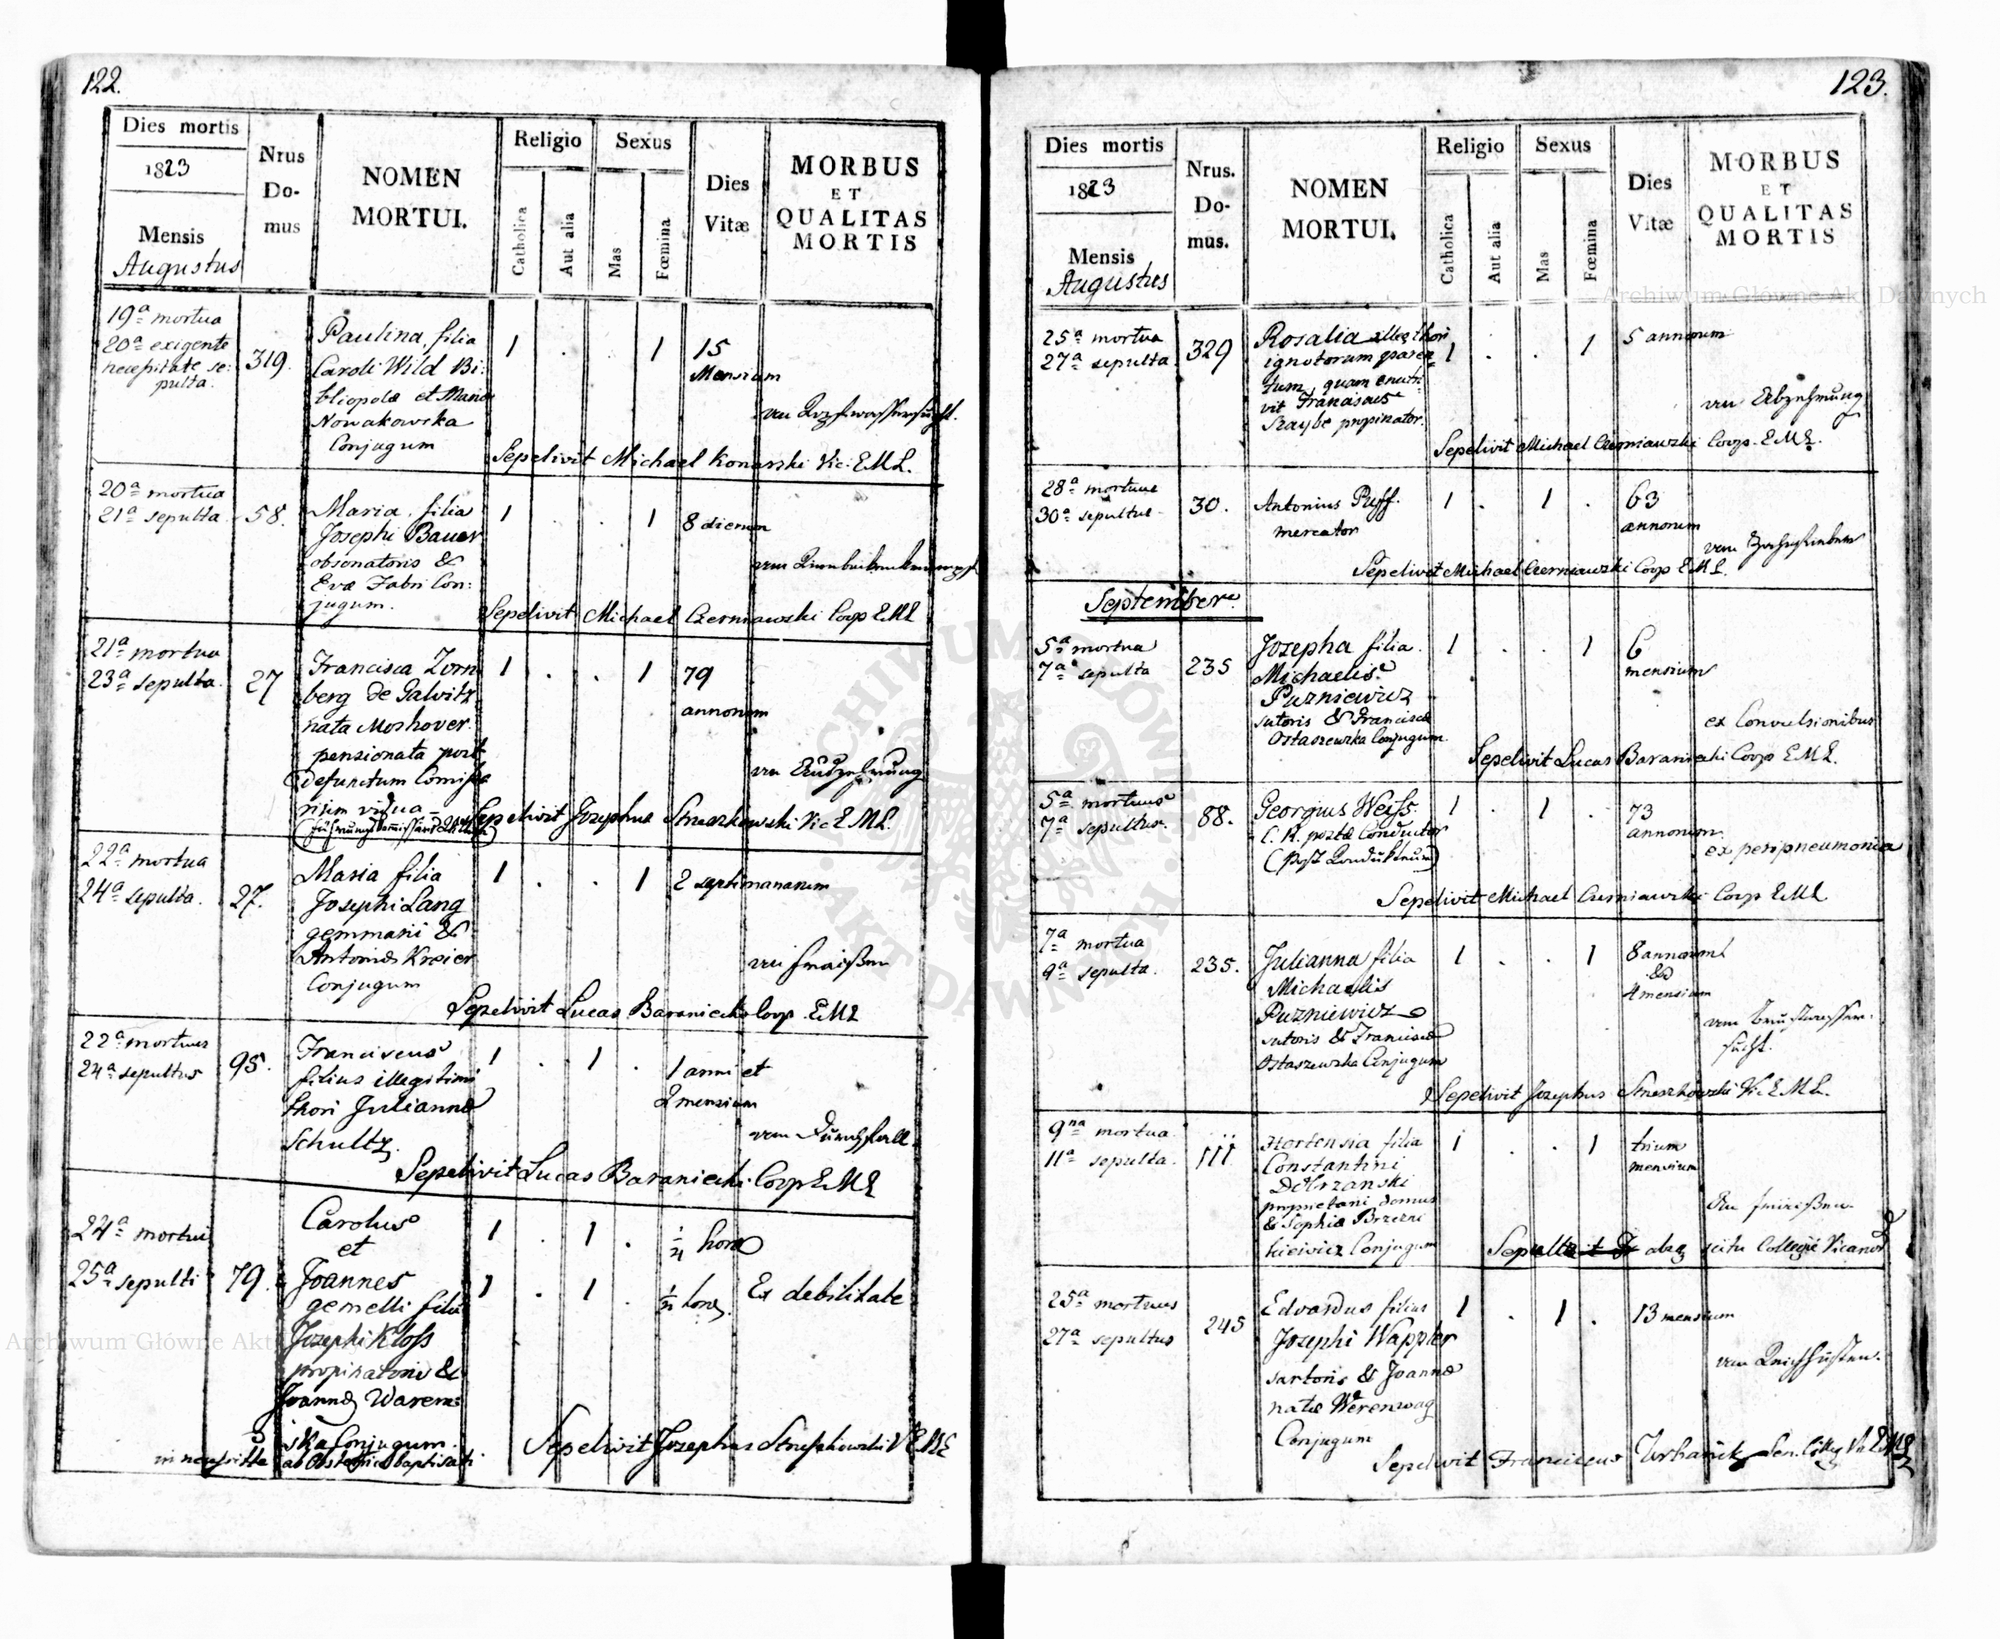 122.
Dies mortis
1823
Mensis
Augustus
Nrus
Do-
mus
NOMEN
MORTUI.
Religio
Catholica
Aut alia
Sexus
Mas
Fœmina
Dies
Vitæ
MORBUS
ET
QUALITAS
MORTIS
19ª mortua
20ª exigente
necessitate se:
pulta.
319.
Paulina, filia
Caroli Wild Bi:
bliopolæ et Mariæ
Nowakowska
Conjugum
1 . . 1
15
Mensium
von Kopfwassersucht.
Sepelivit Michael Konarski Vic. E.M.L.
20ª mortua
21ª sepulta
58.
Maria filia
Josephi Bauer
obsonatoris &
Evæ Fabri Con:
jugum.
1 . . 1
8 dierum
Sepelivit Michael Czerniawski Coop E.M.L
21ª mortua
23ª sepulta.
27
Francisca Zorn
berg de Galvitz
nata Moshover
pensionata post
defunctum Comissa
rium vidua
1 . . 1
79
annorum
von Abzehrung
Sepelivit Josephus Vic E.M.L.
22ª mortua
24ª sepulta.
27.
Maria filia
Josephi Lang
gemmarii &
Antoniæ Kreier
Conjugum
1 . . 1
2 septimanarum
von Fraißen
Sepelivit Lucas Baraniecki Coop. E.M.L
22ª mortuus
24ª sepultus
95.
Franciscus
filius illegitimi
thori Juliannæ
Schultz.
1 . 1 .
1 anni et
2 mensium
vom Durchfall.
Sepelivit Lucas Baraniecki Coop E.M.L
24ª mortui
25ª sepulti
79.
Carolus
et
Joannes
gemelli filii
Josephi Kloss
propinatoris &
Joannæ Warem:
ska Conjugum.
in necessitate ab Obstetrice baptisati
1 . 1 .
1 . 1 .
horæ
horæ.
Ex debilitate
Sepelivit Josephus
123.
Dies mortis
1823
Mensis
Augustus
Nrus.
Do-
mus.
NOMEN
MORTUI.
Religio
Catholica
Aut alia
Sexus
Mas
Fœmina
Dies
Vitæ
MORBUS
ET
QUALITAS
MORTIS
25ª mortua
27ª sepulta
329
Rosalia illeg thori
ignotorum paren
tum, quam enutri
vit Franciscus
Szaybe propinator.
1 . . 1
5 annorum
von Abzehrung
Sepelivit Michael Czerniawski Coop. E.M.L.
28ª mortuus
30ª sepultus
30.
Antonius Puff.
mercator
1 . 1 .
63
annorum
vom Zehrfieber
Sepelivit Michael Czerniawski Coop E.M.L.
September
5ª mortua
7ª sepulta
235
Josepha filia
Michaelis
Puzniewicz
sutoris & Franciscæ
Ostaszewska Conjugum.
1 . . 1
6
mensium
ex Convulsionibus
Sepelivit Lucas Baraniecki Coop E.M.L.
5ª mortuus
7ª sepultus.
88.
Georgius Weiss.
C. R. postæ Conductor
(Post Kondukteur)
1 . 1 .
73
annorum.
ex peripneumonia
Sepelivit Michael Czerniawski Coop E.M.L
7ª mortua
9ª sepulta.
235.
Julianna filia
Michaelis
Puzniewicz
sutoris & Franciscæ
Ostaszewska Conjugum
1 . . 1
8 annorum
&
4 mensium
von Brustwasser:
sucht.
Sepelivit Josephus Vic. E.M.L.
9na mortua
11ª sepulta.
111
Hortensia filia
Constantini
Dobrzanski
proprietarii domus
& Sophiæ Brzezni
kiewicz Conjugum
1 . . 1
trium
mensium
An Fraißen
absq scitu Collegii Vicarior
25ª mortuus
27ª sepultus
245
Edvardus filius
Josephi Wappler
sartoris & Joannæ
natæ Werenwag
Conjugum
1 . 1 .
13 mensium
vom Keichhusten.
Sepelivit Franciscus
Archiwum Główne Akt Dawnych
Archiwum Główne Akt
ARCHIWUM GŁÓWNE
AKT DAWNYCH